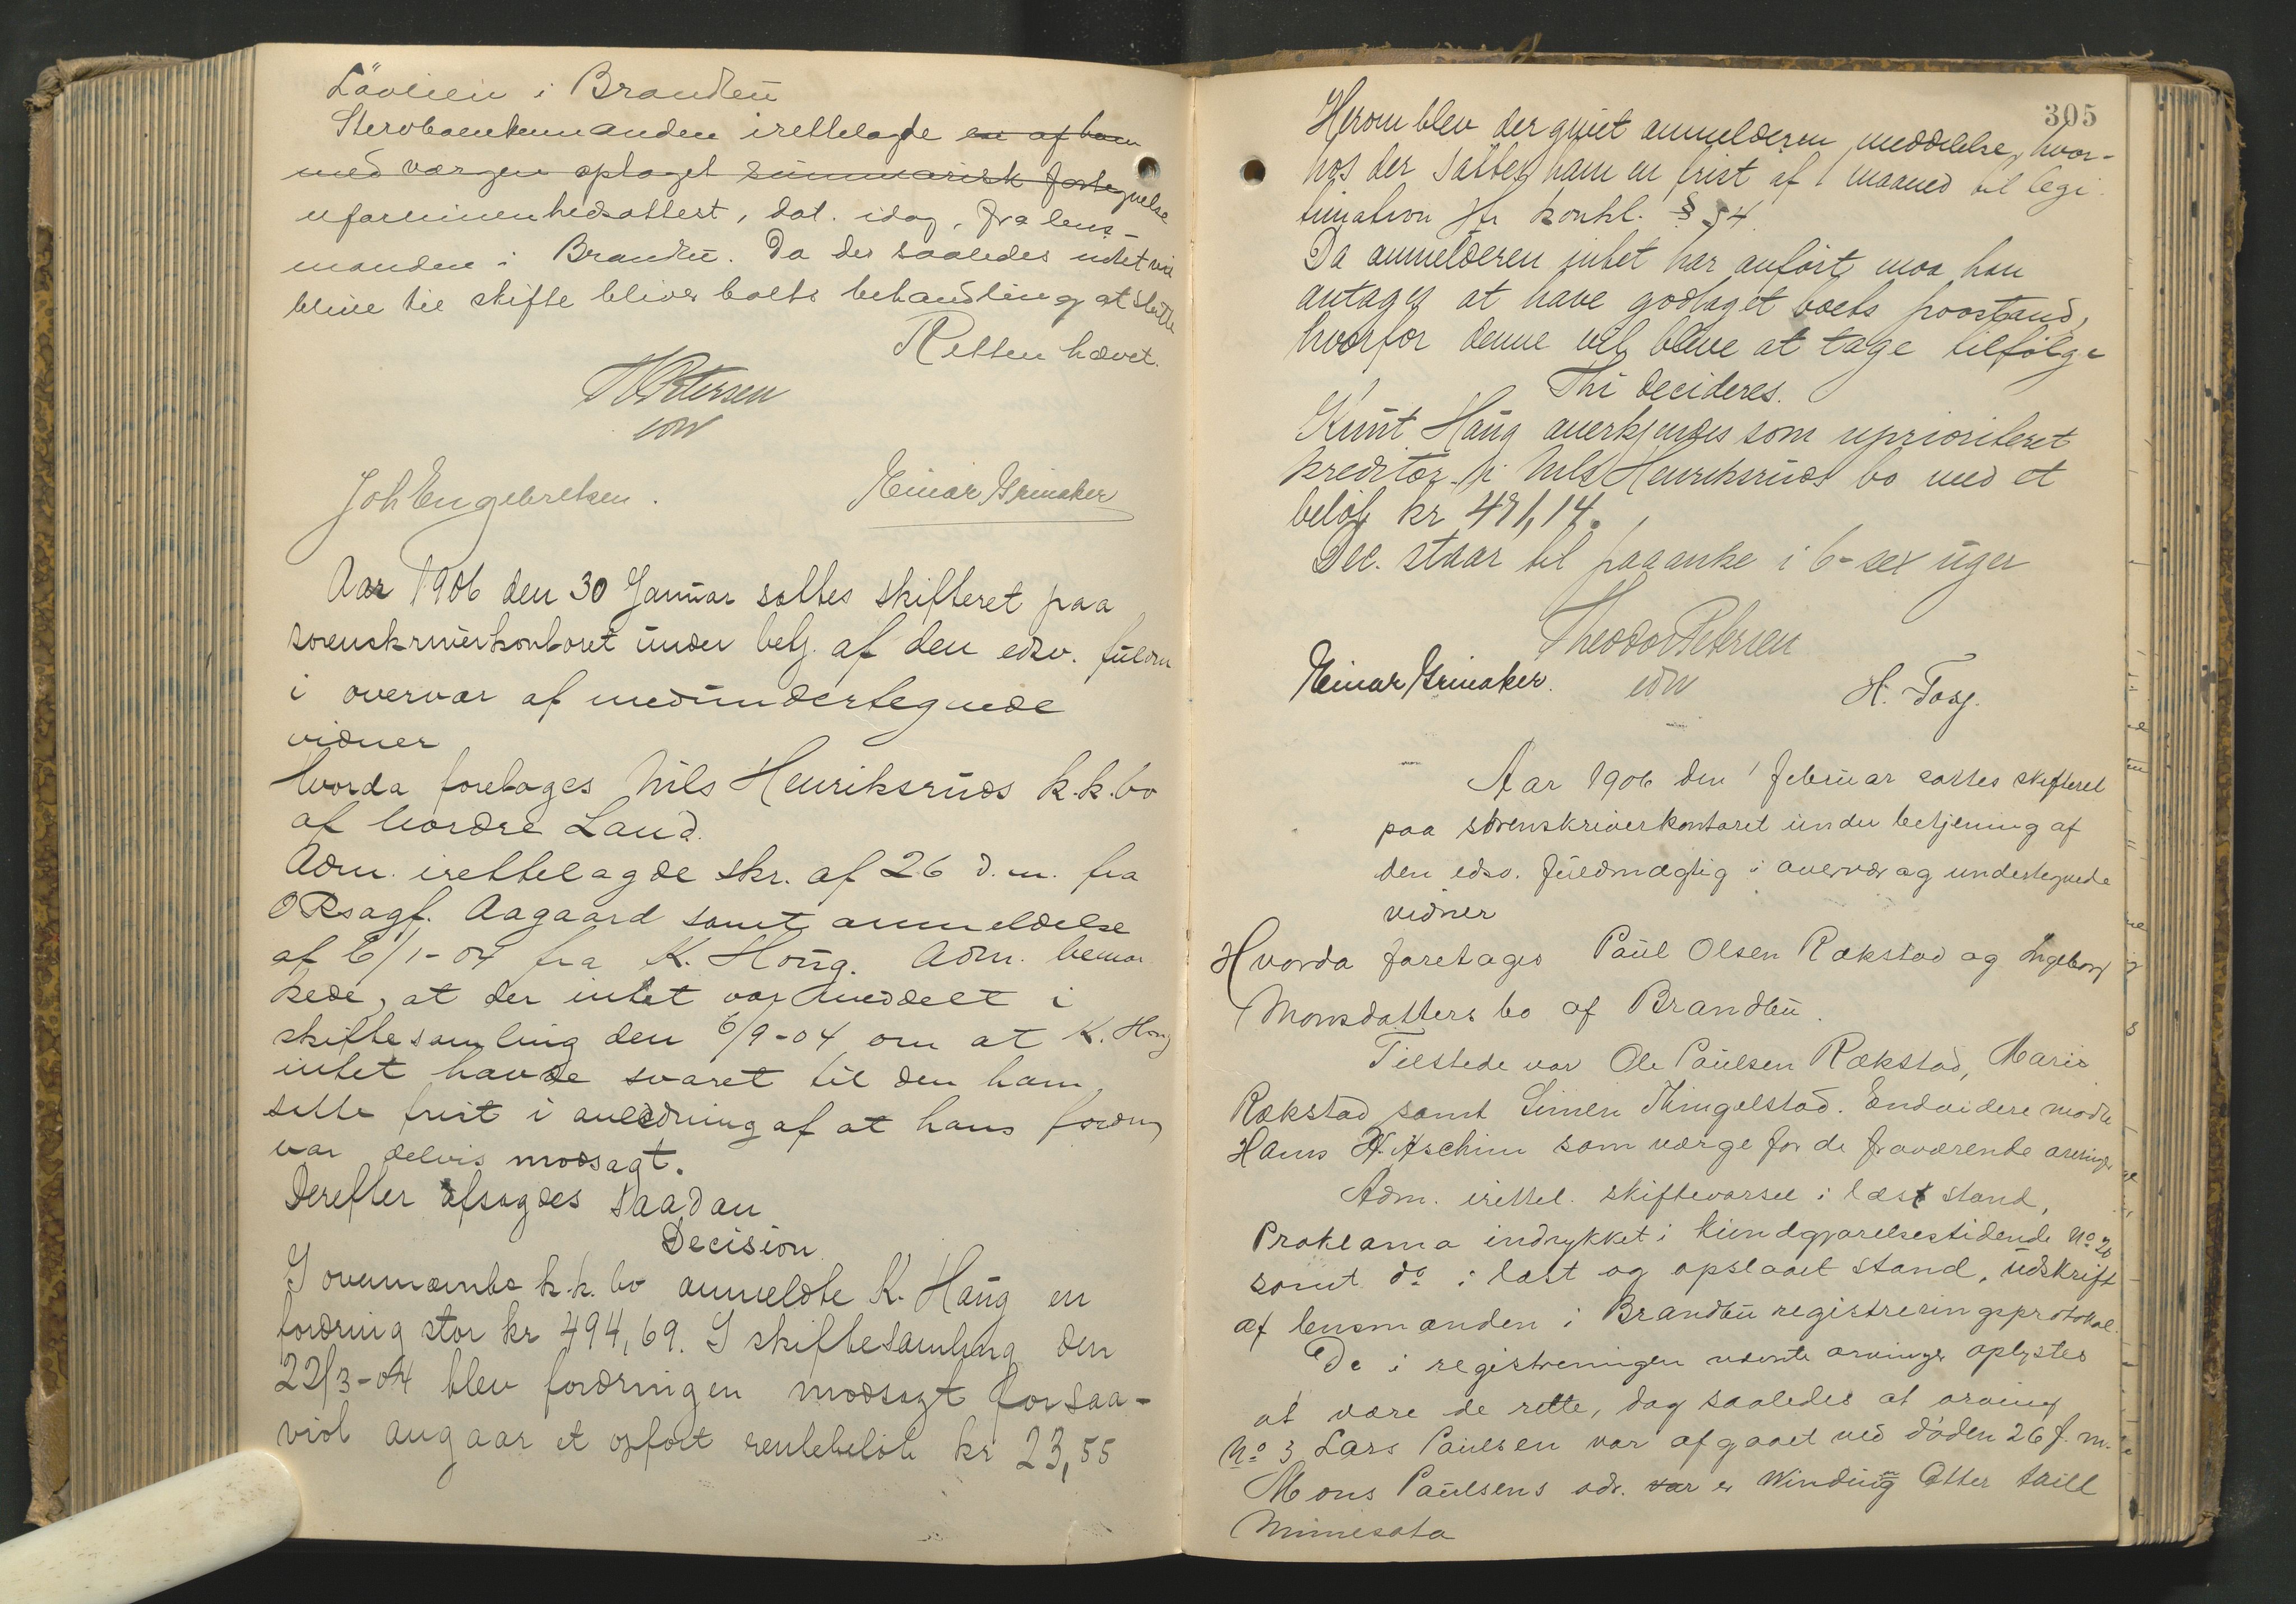 Lövlien i Brandbu
Stervboenkemanden irettelagde en af ham
med værgen optaget summarisk fortegnelse
uformuenhedsattest, dat. idag, fra lens-
manden i Brandbu. Da der saaledes intet vil
blive til skifte bliver boets behandling at slutte
Retten hævet.
Th Petersen
edsv
Joh Engebretsen.
Einar Grinaker
Aar 1906 den 30 Januar sattes skifteret paa
sorenskriverkontoret under betj. af den edsv. fuldm
i overvær af medundertegnede
vidner
Hvorda foretoges Nils Henriksruds k.k. bo
af Nordre Land.
Adm. irettelagde skr. af 26 d.m. fra
ORsagf. Aagaard samt anmeldelse
af 6/1-04 fra K. Haug. Adm. bemær
kede, at der intet var meddelt i
skiftesamling den 6/9-04 om at K. Haug
intet havde svaret til den ham
satte frist i anledning af at hans fordring
var delvis modsagt.
Derefter afsagdes saadan
Decision
I ovennævnte k.k. bo anmeldte K. Haug en
fordring stor kr 494,69. I skiftesamling den
22/3-04 blev fordringen modsagt forsaa-
vidt angaar et opført rentebeløb kr 23,55
305
Herom blev der givet anmelderen meddelelse, hvor-
hos der sattes ham en frist af 1 maaned til legi
timation jfr konkl. § 54
Da anmelderen intet har anført maa han
antages at have godtaget boets paastand,
hvorfor denne vil blive at tage tilfølge
Thi decideres.
Knut Haug anerkjendes som uprioriteret
kreditor i Nils Henriksruds bo med et
beløb kr 471,14.
Dec. staar til paaanke i 6-sex uger
Theodor Petersen
Einar Grinaker. edsv
H. Tosg.
Aar 1906 den 1 februar sattes skifteret
paa sorenskriverkontoret under betjening af
den edsv. fuldmægtig i overvær og undertegnede
vidner
Hvorda foretages Paul Olsen Rækstad og Ingeborg
Monsdatters bo af Brandbu.
Tilstede var Ole Paulsen Rækstad, Maria
Rækstad samt Simen Thingelstad. Endvidere mødte
Hans H. Aschim som værge for de fraværende arvinger
Adm. irettel. skiftevarsel i læst stand,
Proklama indrykket i kundgjørelsestidende No 26
samt do i læst og opslaaet stand, udskrift
af lensmanden i Brandbu registreringsprotokol.
De i registreringen nævnte arvinger oplystes
at være de rette, dog saaledes at arving
No 3 Lars Paulsen var afgaaet ved døden 26 f.m.
Mons Paulsens adr. var er Winding Otter taill
Minnesota